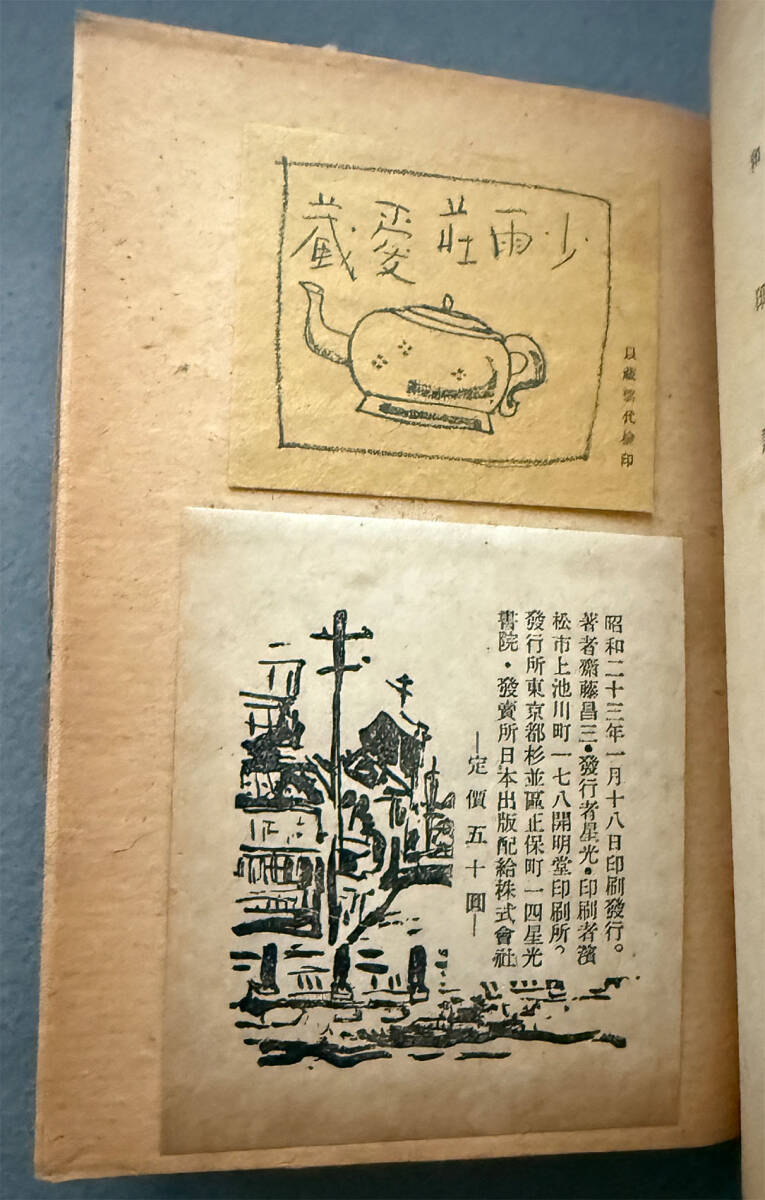 少雨莊愛藏
以藏票代檢印
昭和二十三年一月十八日印刷發行。
著者齋藤昌三・發行者星光・印刷者濱
松市上池川町一七八開明堂印刷所。
發行所東京都杉並區正保町一四星光
書院・發賣所日本出版配給株式會社
—定價五十圓—